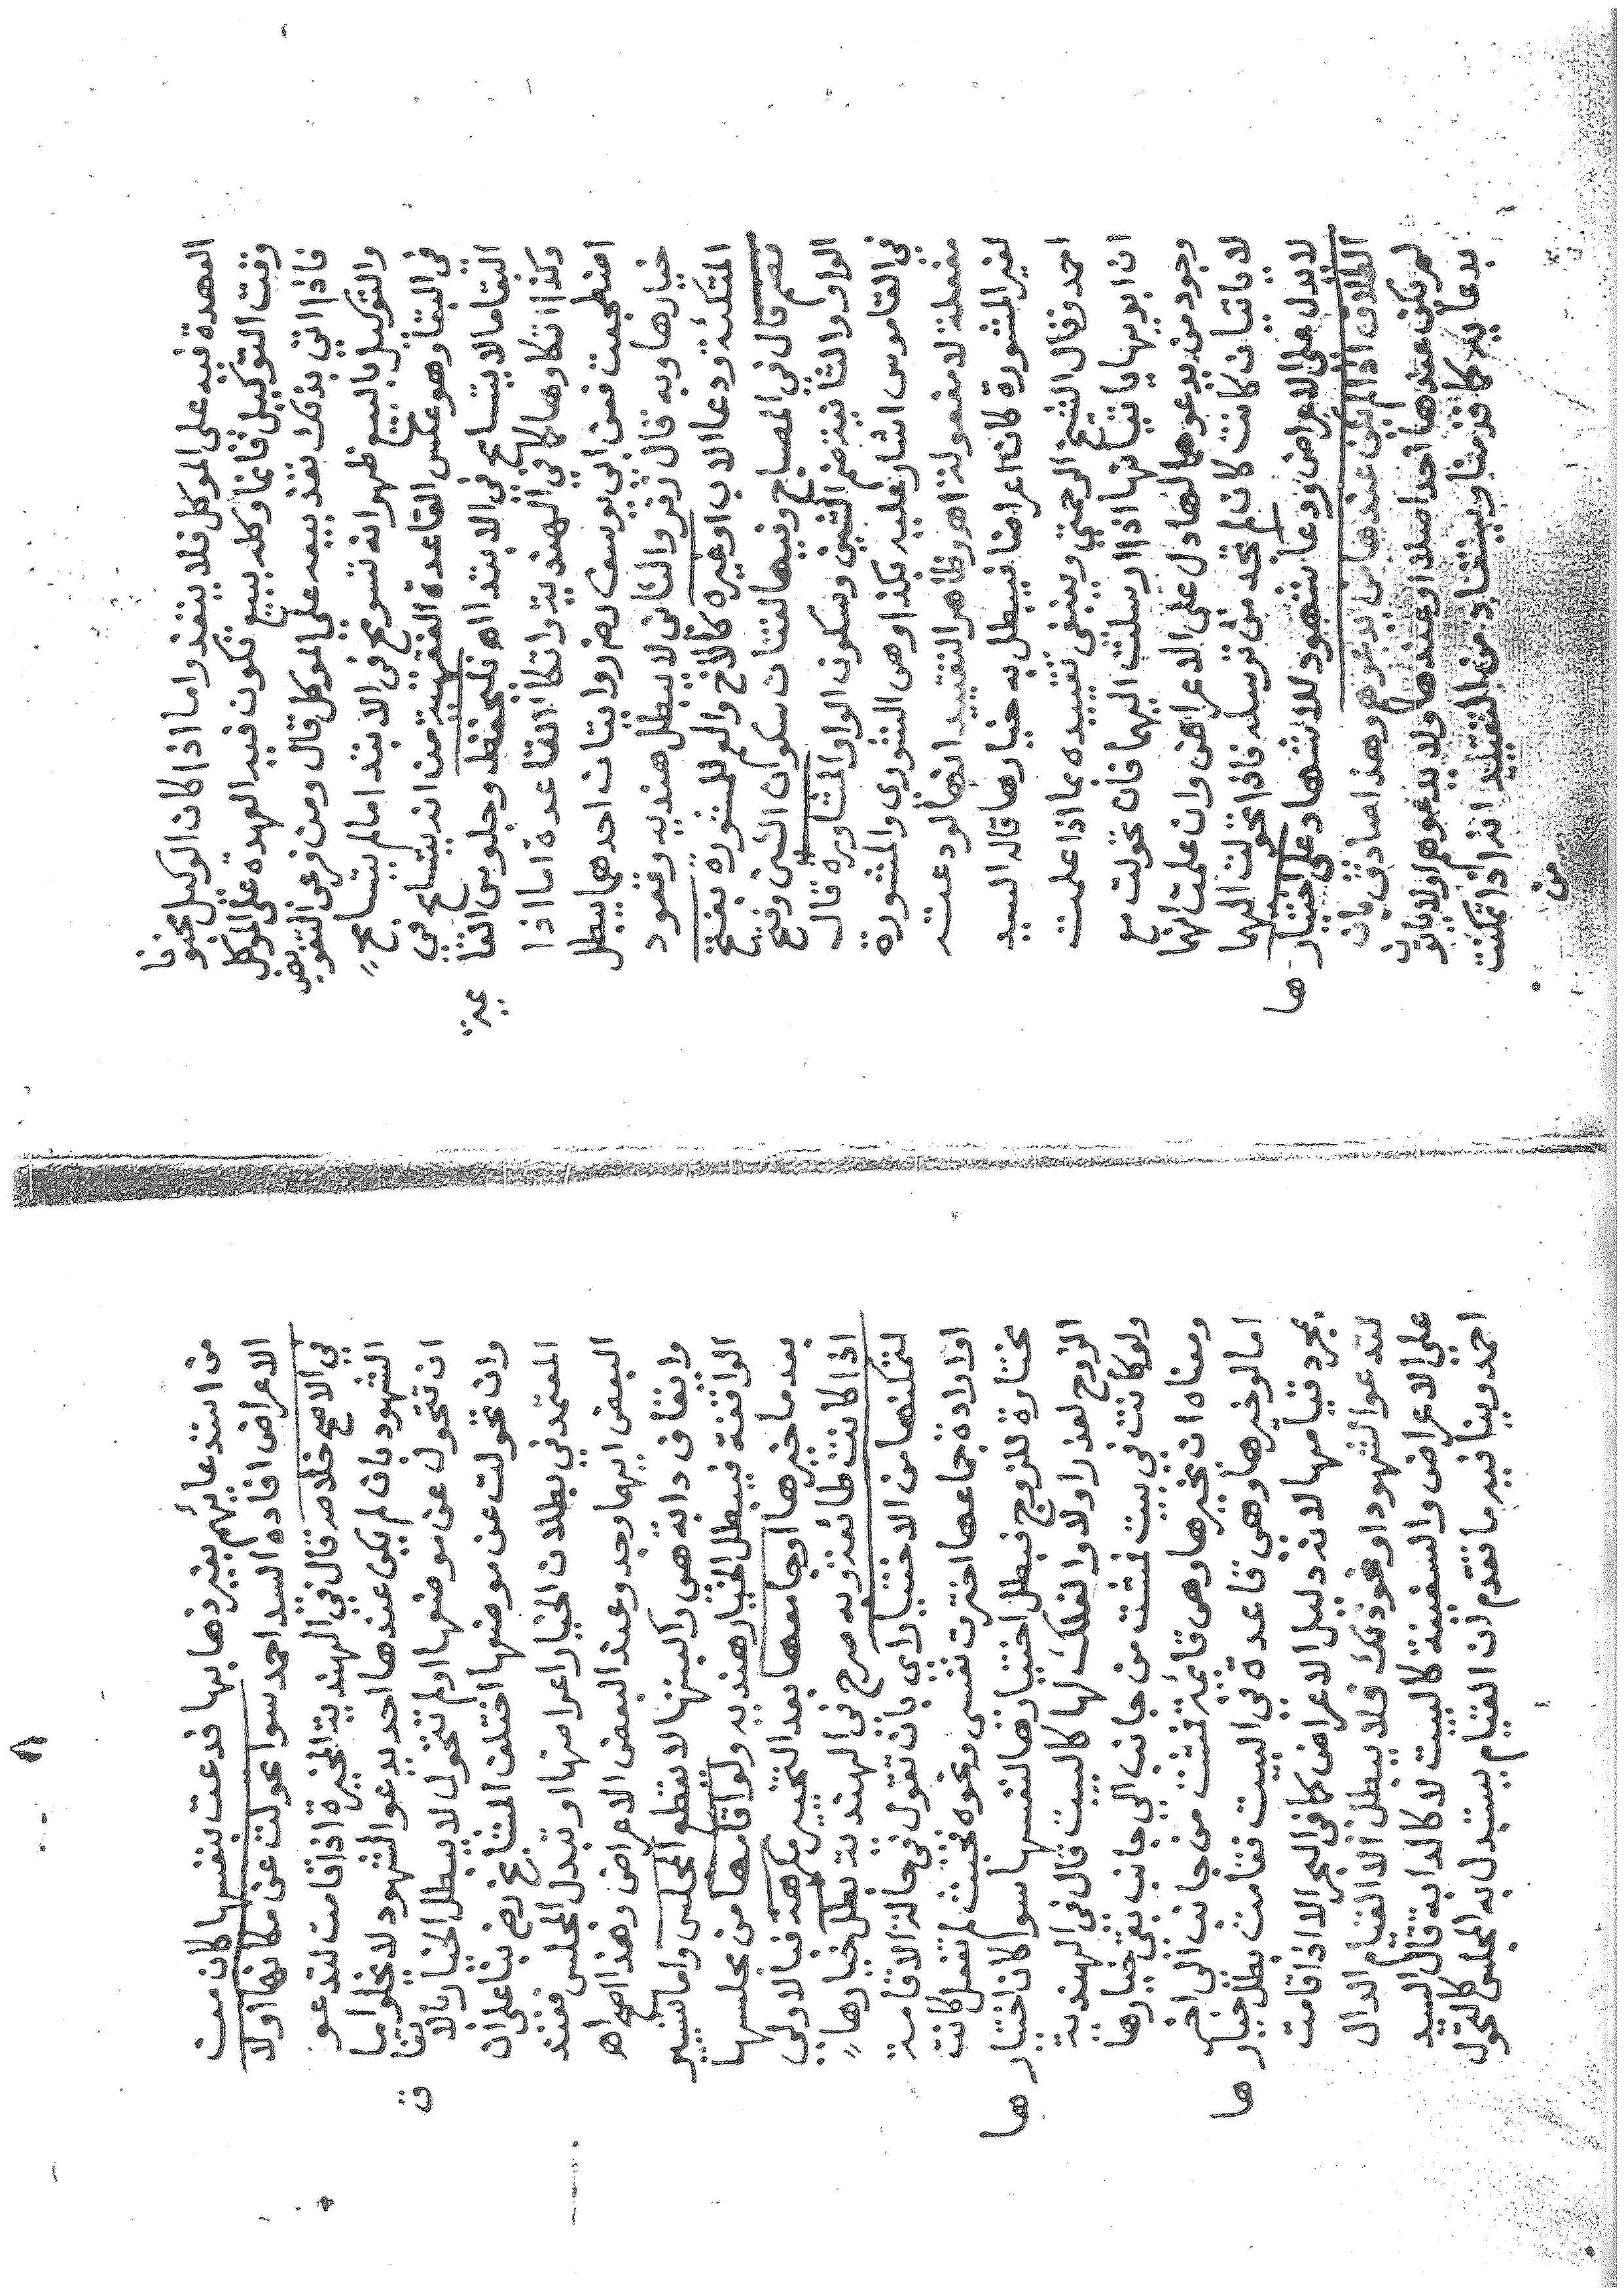 العهدة فيه على الموكل فلا ينفذ واما اذا كان الوكيل مجنونا
وقت التوكيل فانما وكله ببيع تكون فيه العهدة على الموكل
فاذا اتى بذلك نفذ بيعه على الموكل قال ومن فرعي التفويض
والتوكيل بالبيع ظهر انه تسومح في الابتدا مالم يتسامح
في البقا وهو عكس القاعدة الفقهية من انه يتسامح في
البقا مالا يتسامح في الابتدا اه فليحفظ وجلوس القائمة
وكذا اتكاوها كما في الهندية واتكا القاعدة اما اذا
اضطجعت فعن ابي يوسف رضه روايتان احدهما يبطل
خيارها وبه قال زفر والثاني لا يبطل هنديه وقعود
المتكئة ودعا الاب اوغيره كالاخ والعم للمشورة بفتح
فضم قال في المصباح وفيها لغتان سكون الشين وفتح
الواو والثانية ضم الشين وسكون الواو المشاوره قال
في القاموس اشار عليه بكذا وهي الشورى والمشورة
مفعلة لا مفعولة اه وظاهر التقييد انها لو دعته
لغير المشورة كان اعراضا فيبطل به خيارها قاله السيد
احمد وقال الشيخ الرحمتي وينبغي تقييده بما اذا علمت
ان ابويها ياتيانها اذا ارسلت اليهما فان تحولت مع
وجود من يدعوهما لها دل على الاعراض وان علمت انهما
لا ياتيان كانت كان لم تجد من ترسله فاذا تحولت اليهما
لا يدل على الاعراض ودعا شهود للاشهاد على اختيارها
الطلاق اذا لم يكن عندها من يدعوهم وهذا صادق بان
لم يكن عندها احد اصلا او عندها ولا يدعوهم اولا ياتون
بدعائه كما قدمنا ويستفاد من التقييد انه اذا تمكنت
من
٨
من استدعائهم بغيرذهابها فدعت بنفسها كان من
الاعراض افاده السيد احمد سوا تحولت عن مكانها اولا
في الاصح خلاصه قال في الهندية المخيرة اذا قامت لتدعو
الشهود بان لم يكن عندها احد يدعو الشهود لا يخلو اما
ان تتحول عن موضعها اولم تتحول لا يبطل الخيار بالاتفاق
وان تحولت عن موضعها اختلف المشايخ رضه بنا على ان
المعتمد في بطلان الخيار اعراضها او تبدل المجلس فعند
البعض ايهما وجد وعند البعض الاعراض وهذا اصح اه
وايقاف دابة هي راكبتها لا يقطع المجلس واما تسير
الواقفة فيبطل الخيار هنديه ولو اقامها من مجلسها
بعد ماخيرها اوجامعها بعد التخيير مكرهة فبالاولى
اذا كانت طائعة وبه صرح في الهندية بطل خيارها
لتمكنها من الاختيار اي بان تقول في حالة الاقامة
او ارادة جماعها اخترت نفسي ونحوه فحيث لم تفعل كانت
مختارة للزوج فبطل اختيارها لنفسها سوا كان اختيارها
الزوج لعذر اولا والفلك لها كالبيت قال في الهندية
ولو كانت في بيت فمشت من جانب الى جانب بقي خيارها
ومعناه ان يخيرها وهي قائمة فمشت من جانب الى اخر
اما لو خيرها وهي قاعدة في البيت فقامت بطل خيارها
بمجرد قيامها لانه دليل الاعراض كما في البحر الا اذا قامت
لتدعو الشهود او نحو ذلك فلا يبطل الا القيام الدال
على الاعراض والسفينة كالبيت لا كالدابه قال السيد
احمد وينافيه ماتقدم ان القيام يستدل به المجلس كالتحول